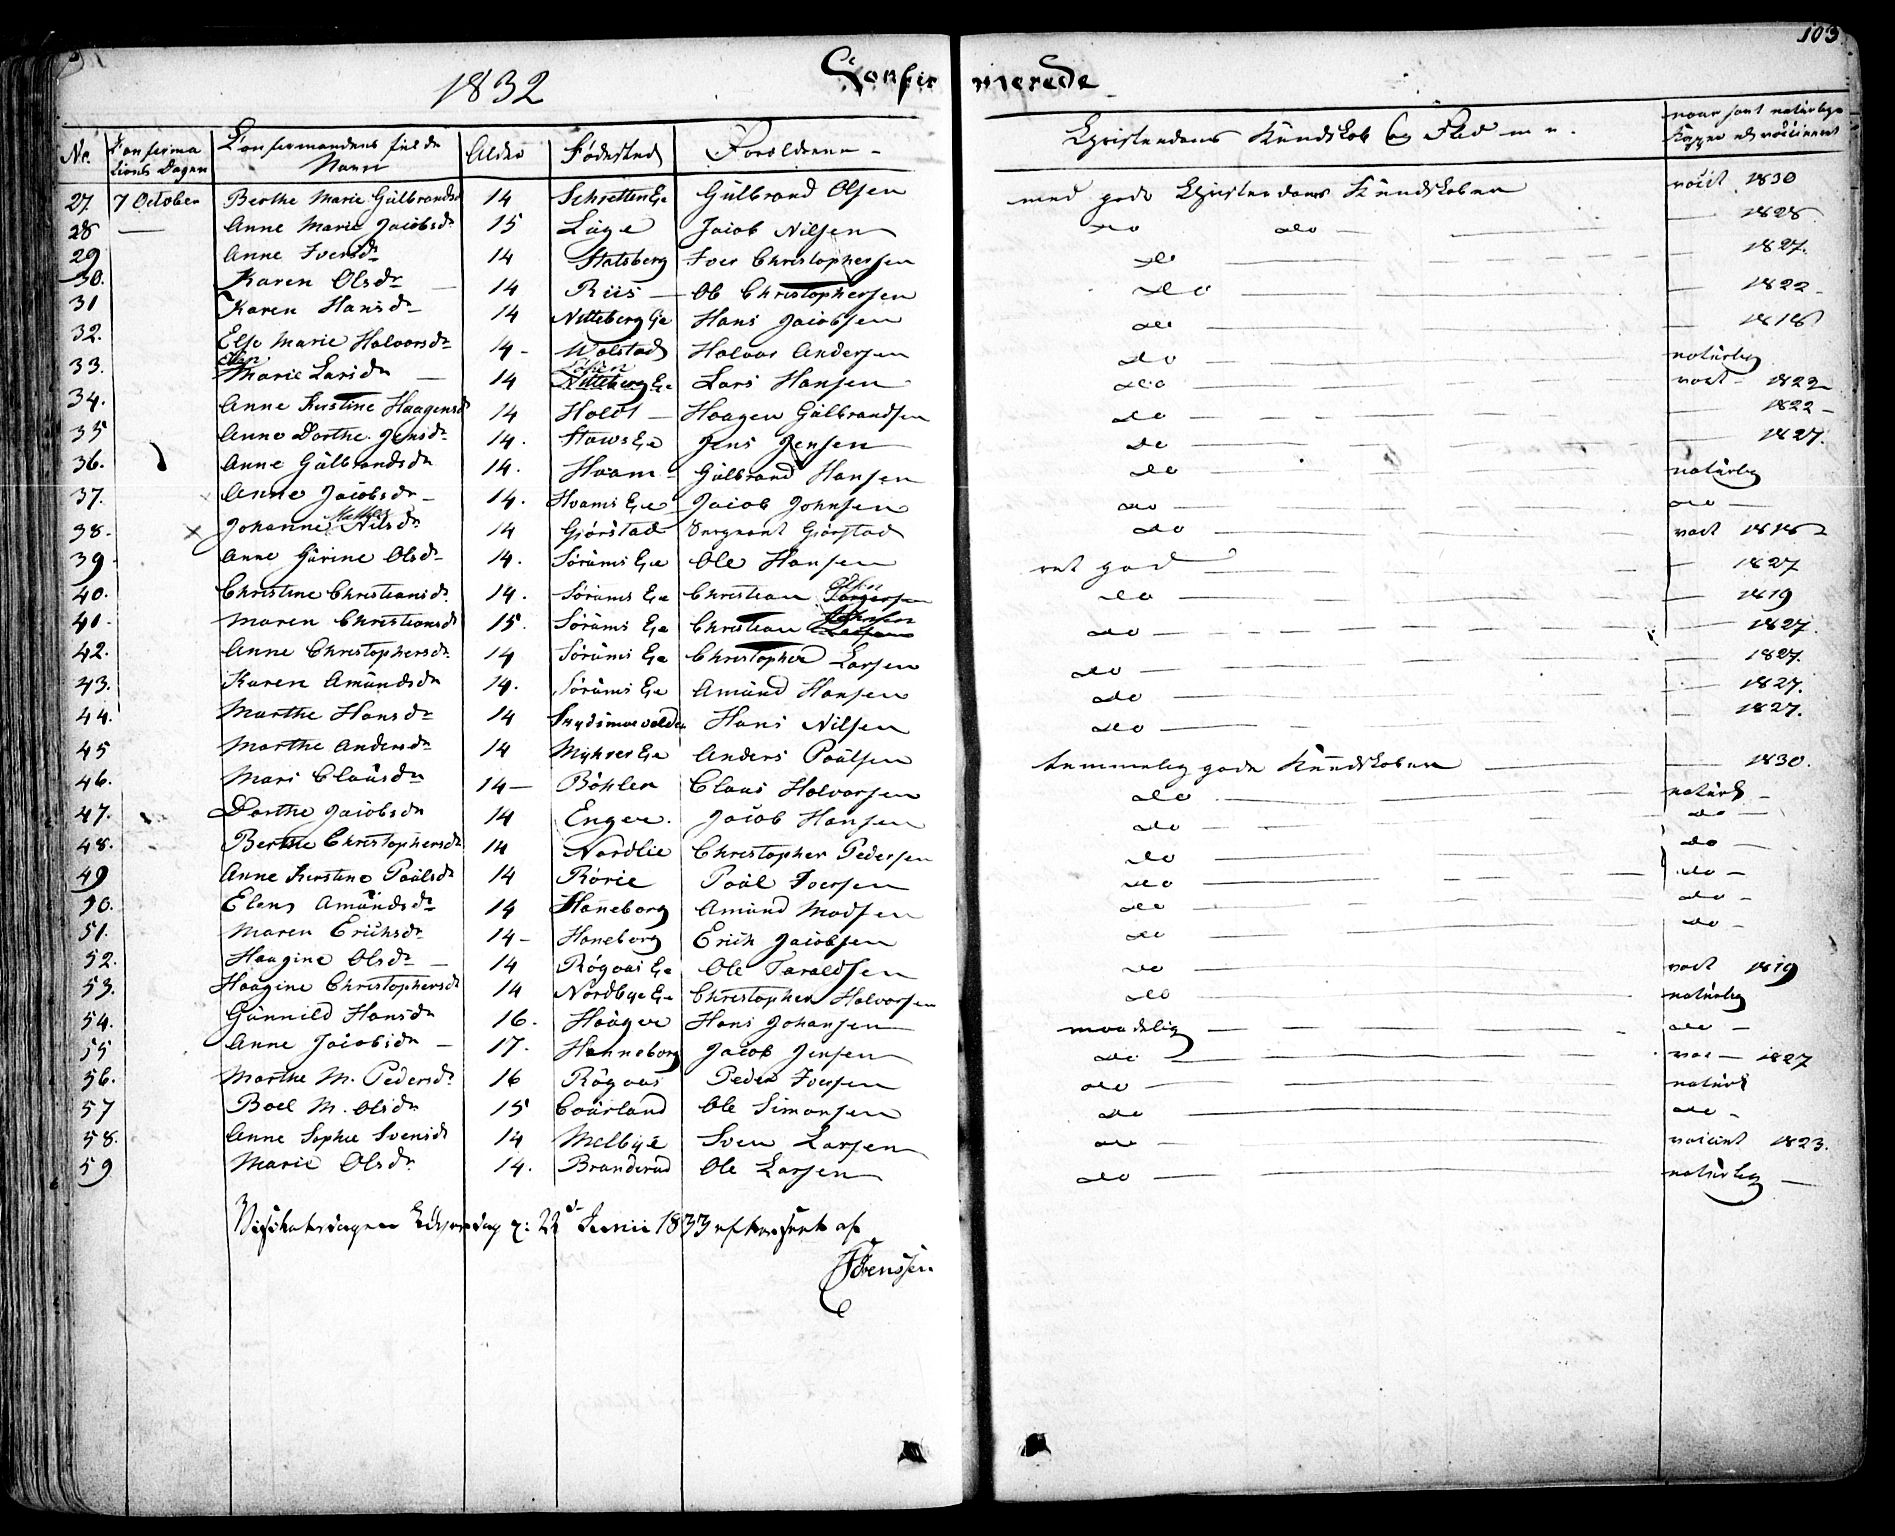 103
1832 Confirmerede
No. Confirmations Dagen Confirmandens fulde Navn Alder Fødested Forældrene Christendoms Kundskab og Flid m. v. naar havt naturlige Kopper el: vaccineret
27 7 October Berthe Marie Gulbrandsdr 14 Schretten Eie Gulbrand Olsen med gode Christendoms Kundskaber vacct 1830
28 — Anne Marie Jacobsdr 15 Lüge Jacob Nilsen do do — 1828
29 Anne Iversdr 14 Statsberg Iver Christophersen do — 1827.
30. Karen Olsdr — 14 Riis — Ole Christophersen do — 1822 -
31 Karen Hansdr 14 Nitteberg Eie Hans Jacobsen do — 1818
32. Else Marie Halvorsdr 14 - Wolstad Halvor Andersen do — naturlig
33. Marie Larsdr — 14 Nitteberg Eie Lars Hansen do — vact - 1822
34. Anne Kirstine Haagensdr 14 Holdt — Haagen Gulbrandsen do — 1822 -
35 Anne Dorthe Jensdr 14. Staws Eie Jens Jensen do — 1827.
36. Anne Gulbrandsdr 14. Hvam - Gulbrand Hansen do — naturlig
37. Anne Jacobsdr - 14. Hvams Eie Jacob Johnsen do — do —
38. × Johanne Nilsdr 14 Gjørstad Gjørstad do — vact 1818
39. Anne Gurine Olsdr 14. Sørums Eie Ole Hansen ret god — 1827
40. Christine Christiansdr 14. Sørums Eie Christian do — 1819
41 - Maren Christiansdr 15. Sørums Eie Christian do — 1827.
42. Anne Christophersdr 14 Sørums Eie Christopher Larsen do — 1827.
43. Karen Amundsdr 14. Sørums Eie Amund Hansen do — 1827.
44. Marthe Hansdr 14 Hans Nilsen do — 1827.
45 Marthe Andersdr 14 Myhres Eie Anders Paulsen temmelig gode Kundskaber — 1830.
46. Mari Clausdr 14 — Böhler Claus Halvorsen do — naturl -
47. Dorthe Jacobsdr 14 Enger. Jacob Hansen do — do —
48. Berthe Christophersdr 14 Nordlie Christopher Pedersen do — do —
49 Anne Kirstine Paulsdr 14 Rörie Paul Iversen do — do —
50. Elens Amundsdr 14 Haneborg Amund Madsen do — do -
51. Maren Erichsdr 14 - Haneborg Erich Jacobsen do — do -
52. Haagine Olsdr — 14 Rögaas Eie Ole Taraldsen do — vact 1819
53. Haagine Christophersdr 14 Nordbye Eie Christopher Halvorsen do — naturlig
54. Gunnild Hansdr 16. Hauger Hans Johansen maadelig — do —
55 Anne Jacobsdr — 17. Hanneborg Jacob Jensen do — vac — 1827
56. Marthe M. Pedersdr 16 Rögaas Peder Iversen do — naturl
57 Boel M. Olsdr 15 Ole Simonsen do — do -
58. Anne Sophie Svensdr 14 Melbye Sven Larsen do — vaccint 1823.
59 Marie Olsdr 14. Branderud Ole Larsen do — naturlig —
22 Junii 1833 efterseet af